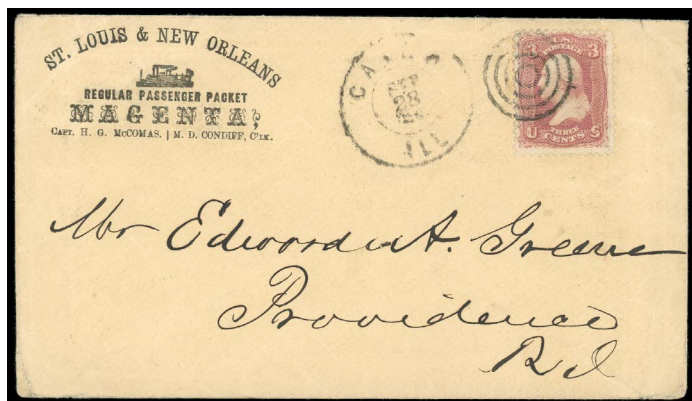 ST. LOUIS & NEW ORLEANS
REGULAR PASSENGER PACKET
MAGENTA,
CAPT. H. G. MCCOMAS. | M. D. CONDIFF, C'LK.
CAIRO
28
ILL
3 U.S. 3
POSTAGE
U THREE S
CENTS
Mr Edward A. Greene
Providence
R I